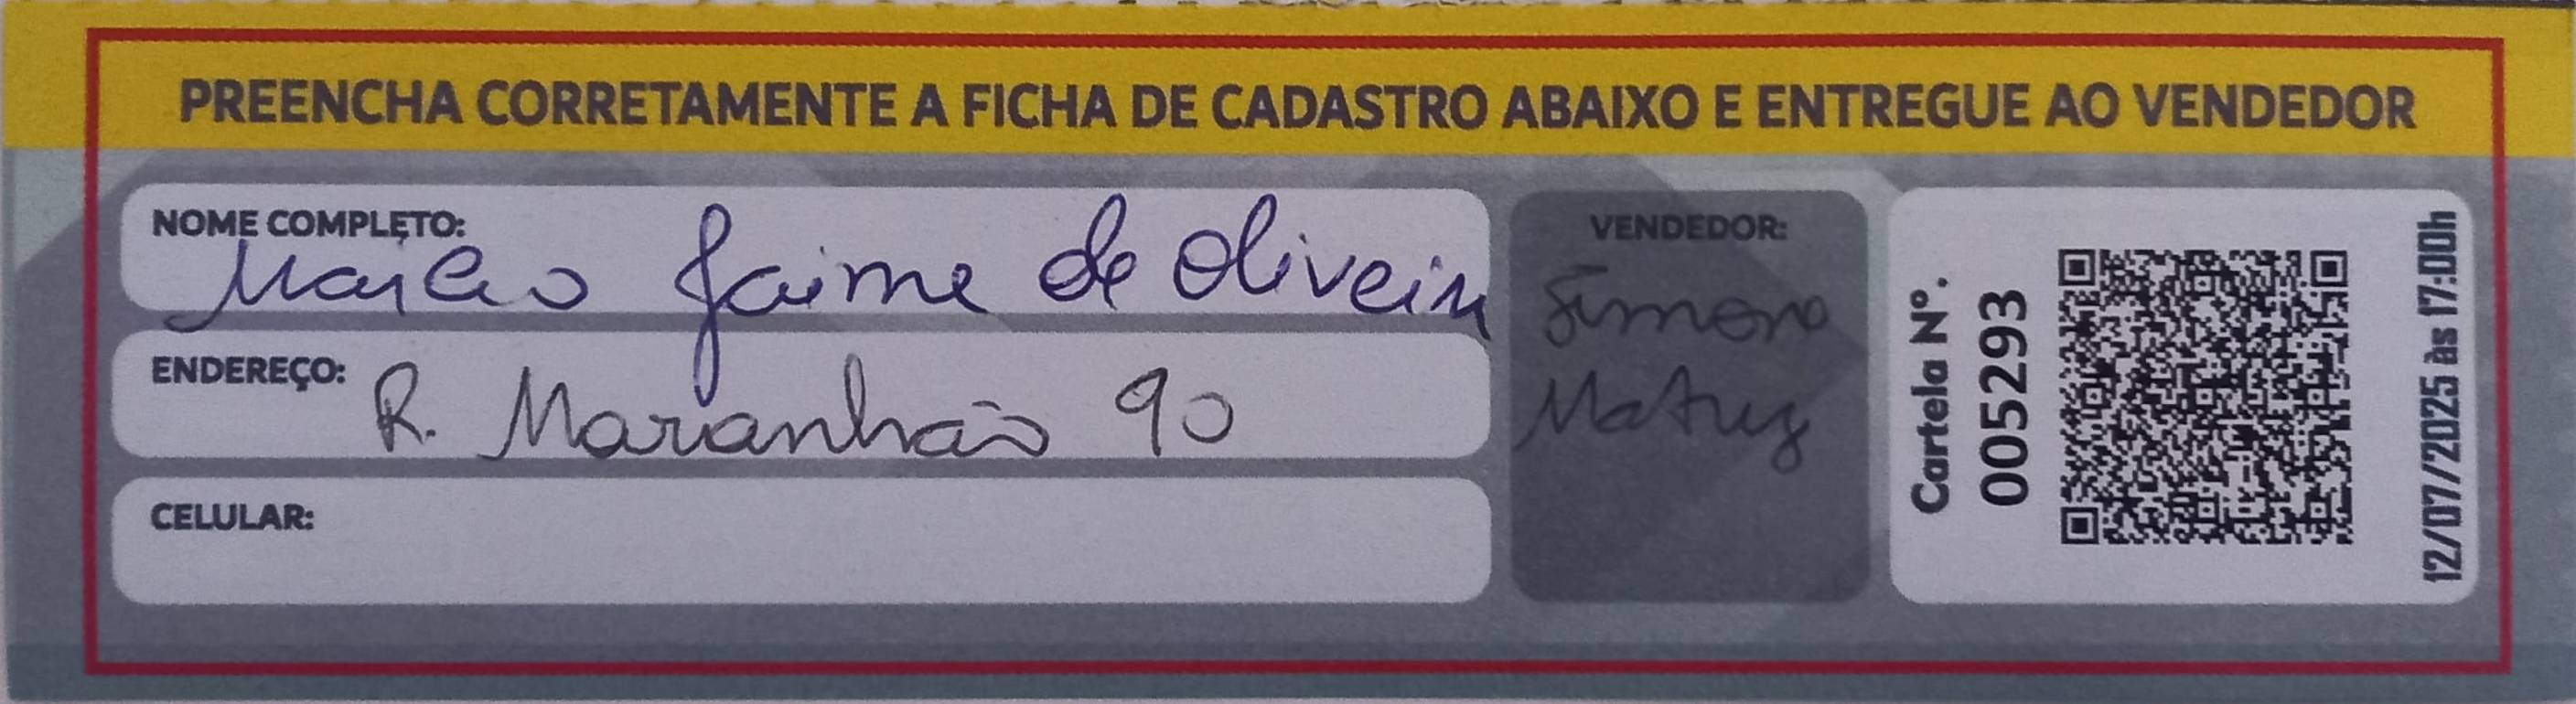 PREENCHA CORRETAMENTE A FICHA DE CADASTRO ABAIXO E ENTREGUE AO VENDEDOR
NOME COMPLETO:
Jaime de Oliveira
ENDEREÇO: R. Maranhão 90
CELULAR:
VENDEDOR:
Simone
Cartela Nº.
005293
12/07/2025 às 17:00h